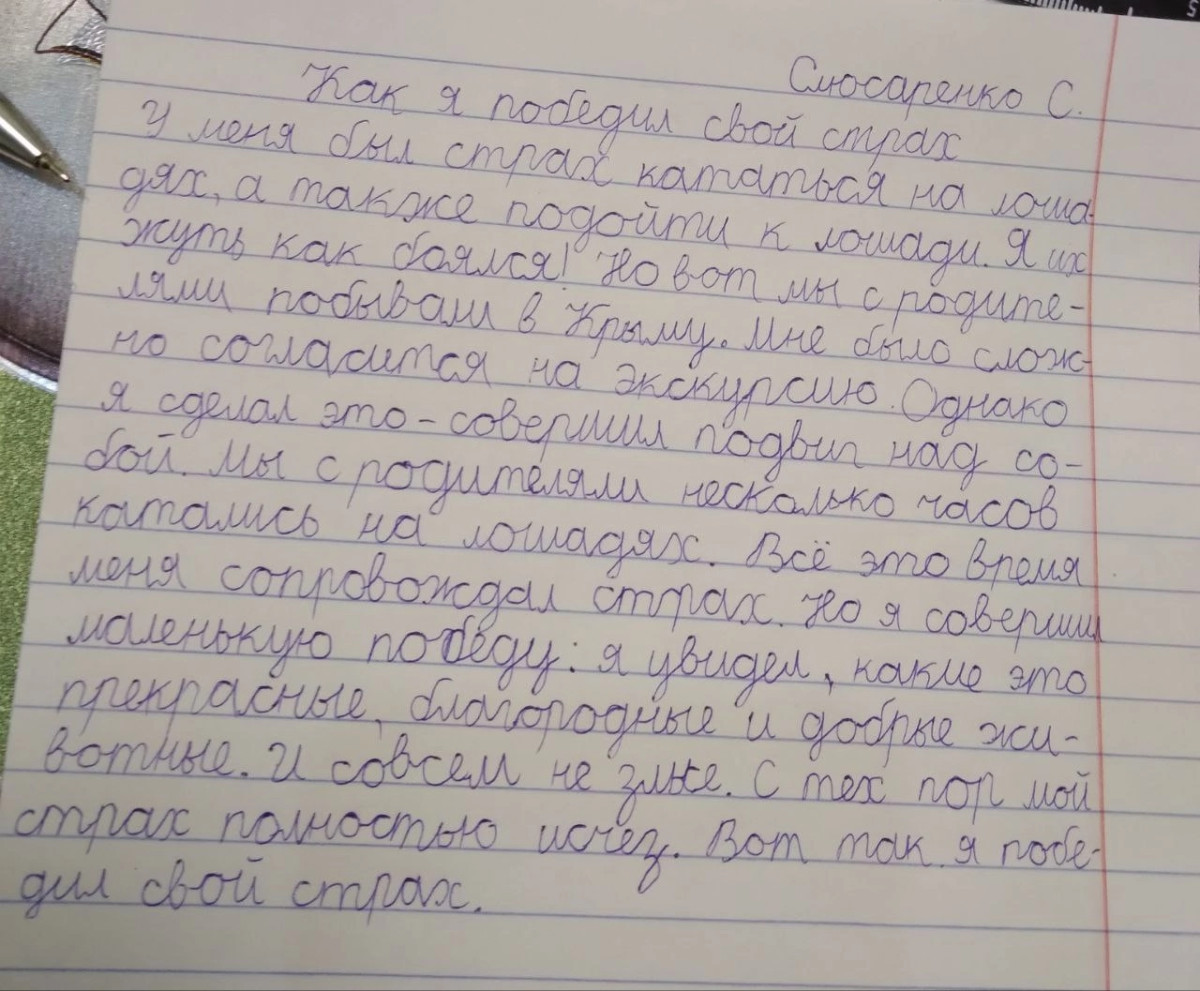 Слюсаренко С.
Как я победил свой страх
У меня был страх кататься на лоша-
дях, а также подойти к лошади. Я их
жуть как боялся! Но вот мы с родите-
лями побывали в Крыму. Мне было слож-
но согласится на экскурсию. Однако
я сделал это - совершил подвиг над со-
бой. Мы с родителями несколько часов
катались на лошадях. Всё это время
меня сопровождал страх. Но я совершил
маленькую победу: я увидел, какие это
прекрасные, благородные и добрые жи-
вотные. И совсем не злые. С тех пор мой
страх полностью исчез. Вот так я побе-
дил свой страх.